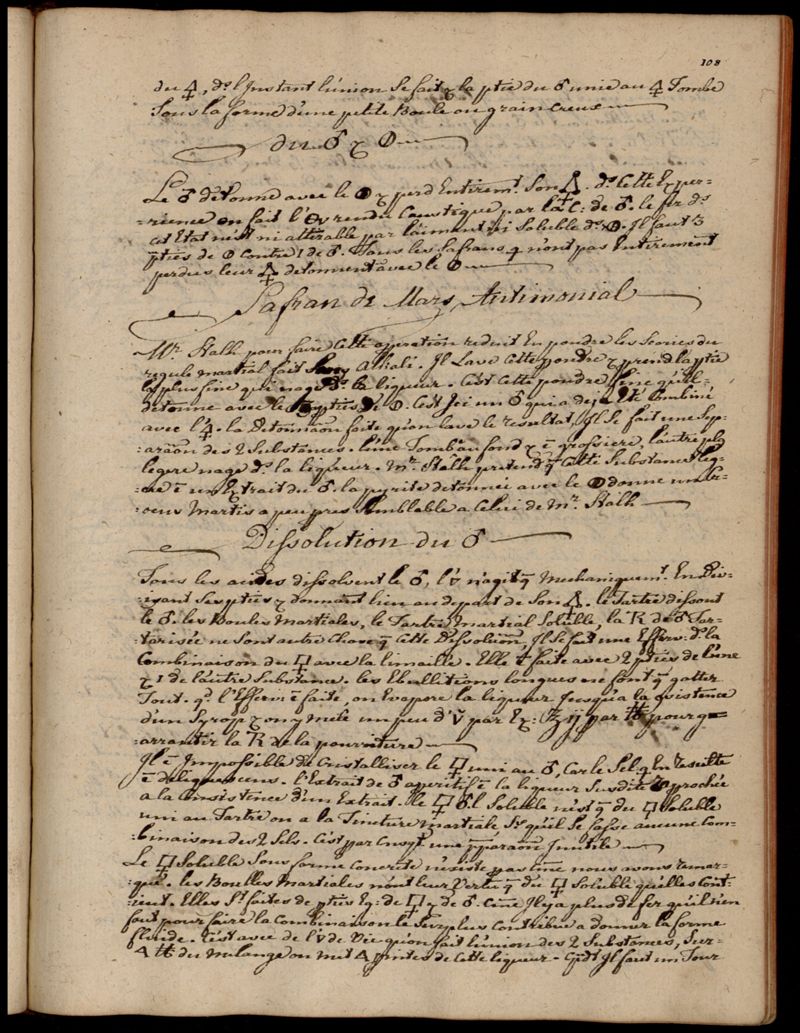 108
du 🜍, ds l'Instant l'union se fait & la ptie du ♂ unie au 🜍 Tombe
sous la forme d'une petite Boule ou grain creuse
du ♂ & 🜕
Le ♂ détonne avec le 🜕 & perd Entieremt. Son 🜍. ds Cette Expe=
=rience on fait l' rendu Caustique par la C: de ♂. le fer ds
cet Etat n'est ni attirable par l'aimant ni soluble ds. Il faut 3
pties de 🜕 Contre 1 de ♂. Tous les Safrans q n'ont pas Entierement
perdus leur 🜍 detonnent avec le 🜕
Safran de Mars Antimonial
Mr. Stalh pour faire Cette operation reduit En poudre les Scories du
regule martial fait Alkali. Il Lave Cette poudre & prend la ptie
la plus fine qui nage ds. la liqueur. C'est Cette poudre fine qu'il
detonne avec le pties de 🜕. C'est Ici un ♂ qui a deja été Combiné
avec l'🜍. la Detonnãon faite qu'on lave le resultat, Il se fait une Sep=
=arãon des 2 Substances. l'une Tombe au fond & ē grossiere, l'autre pls
legere nage ds. la liqueur. Mr. Stalh pretend q̃ Cette Substance leg=
=ere ē un Extrait du ♂. la pyrite detonnée avec le 🜕 donne un Cr=
=ocus Martis a peu pres Semblable a Celui de Mr. Stalh
Dissolution du ♂
Tous les acides dissolvent le ♂, l'🜄 n'agit q̃ Mechaniquemt. En Div=
=isant Ses pties & donnant lieu au depart de Son 🜍. le Tartre dissout
le ♂. les Boules Martiales, le Tartre Martial Soluble, la R de ♂ Tar=
=tarisée ne Sont autre Chose q̃ Cette Dissolution, Il se fait une Efferv: ds la
Combinaison du 🜿 avec la limaille. Elle ē faite avec 2 pties de l'une
& 1 de l'autre Substance. les Ebullitions longues ne font q̃ gatter
Tout. qd. l'Efferv: ē faite, on Evapore la liqueur Jusqu'a la Cosistence
d'un Syrop & on y mele un peu d' par Ex: ℥ ij par ℔ pour g=
=arrantir la R de la pourriture
Il ē Impossible de Cristalliser le 🜿 uni au ♂, Car le Sel q̃ En resulte
ē deliquescens. l'Extrait de ♂ aperitif ē la liqueur Susdite rapprochée
a la Consistence d'un Extrait. le 🜿 ♂l Soluble n'est q̃ du 🜿 Soluble
uni au Tartre ou a la Tinture Martiale, Ss qu'il Se fasse aucune Com=
=binaison des 2 Sels. C'est par Csqt une p̃parãon Inutile
Le 🜿 Soluble Sous forme Concrete n'existe pas c̃me nous avons remar=
=qué. les Boulles Martiales n'ont leur Vertu q̃ du 🜿 Soluble qu'elles Cont=
=ient. Elles St. faites de pties Eg: de 🜿 & de ♂. C̃me Il y a plus de fer qu'il n'en
faut pour faire la Combinaison le Surplus Contribue a donner la forme
fluide. C'est avec de l'🜄 de Vie qu'on fait l'union des 2 Substances, Sur=
4 ℔ du Melange on met 4 pintes de Cette liqueur. Cpdt Il faut un Tour